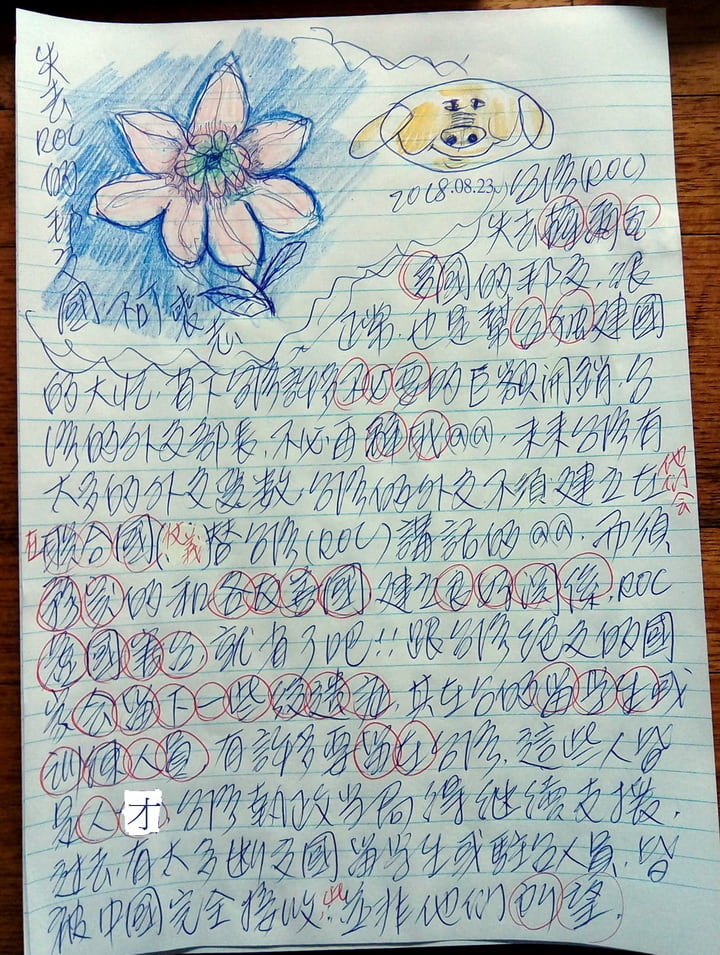 失去ROC的邦交國不可喪志
2018.08.23. 台湾(ROC)
失去
國的邦交, 很
正常. 也是幫台独建國
的大忙, 省下台湾許多不必要的巨額開銷, 台
湾的外交部長, 不必再辭職@@. 未來台湾有
太多的外交變數, 台湾的外交不須建立在他們会
在聯合國仗義替台湾(ROC)講話的@@. 而須
務實的和各友善國建立良好関係, ROC
就有了吧!! 跟台湾絕交的國
家会留下一些後遺症, 其在台的留学生或
訓練人員, 有許多要留在台湾, 這些人皆
是人才 台湾執政当局得継續支援,
过去, 有太多断交國留学生或駐台人員, 皆
被中國完全接收, 此並非他們所望.